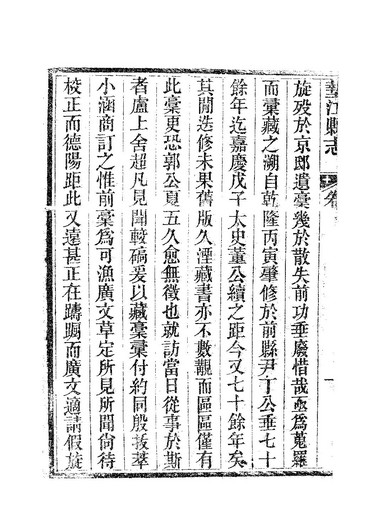 墊江縣志
旋歿於京邸遺稾幾於散失前功垂廢惜哉亟爲蒐羅
而彙藏之溯自乾隆丙寅肇修於前縣尹丁公垂七十
餘年迄嘉慶戊子太史董公續之距今又七十餘年矣
其閒迭修未果舊版久湮藏書亦不數覯而區區僅有
此稾更恐郭公夏五久愈無徵也就訪當日從事於斯
者盧上舍超凡見聞較碻爰以藏稾彙付約同殷拔萃
小涵商訂之惟前稾爲可漁廣文草定所見所聞尙待
校正而德陽距此又遠甚正在躊躇而廣文適請假旋